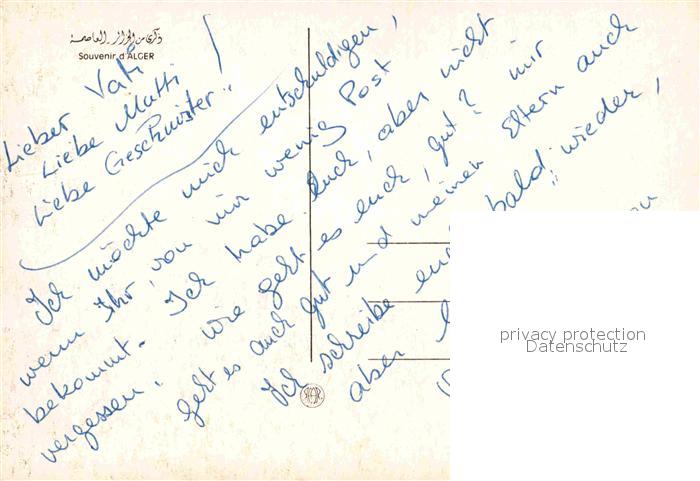 ذكرى من الجزائر العاصمة
Souvenir d'ALGER
Lieber Vati
Liebe Mutti
Liebe Geschwister!
Ich möchte mich entschuldigen,
wenn Ihr von mir wenig Post
bekommt. Ich habe Euch, aber nicht
vergessen. Wie geht es euch, gut? mir
geht es auch gut und meinen Eltern auch
Ich schreibe bald wieder,
aber
privacy protection
Datenschutz